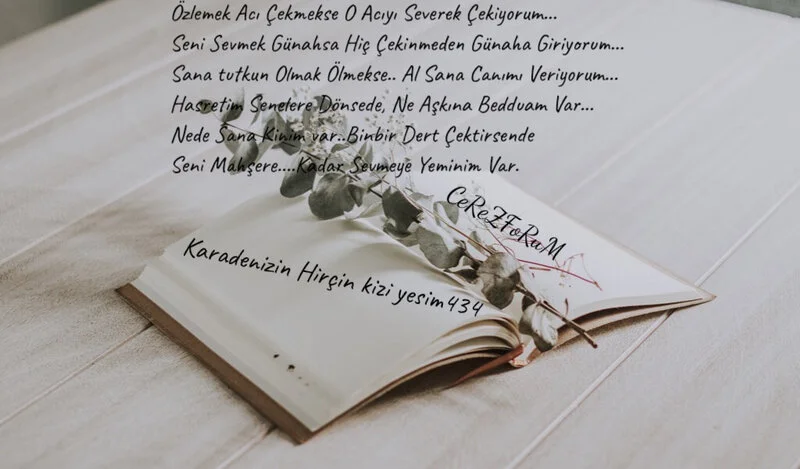 Özlemek Acı Çekmekse O Acıyı Severek Çekiyorum...
Seni Sevmek Günahsa Hiç Çekinmeden Günaha Giriyorum...
Sana tutkun Olmak Ölmekse.. Al Sana Canımı Veriyorum...
Hasretim Senelere Dönsede, Ne Aşkına Bedduam Var...
Nede Sana Kinim var..Binbir Dert Çektirsende
Seni Mahşere....Kadar Sevmeye Yeminim Var.
CeReZFoRuM
Karadenizin Hirçin kizi yesim434